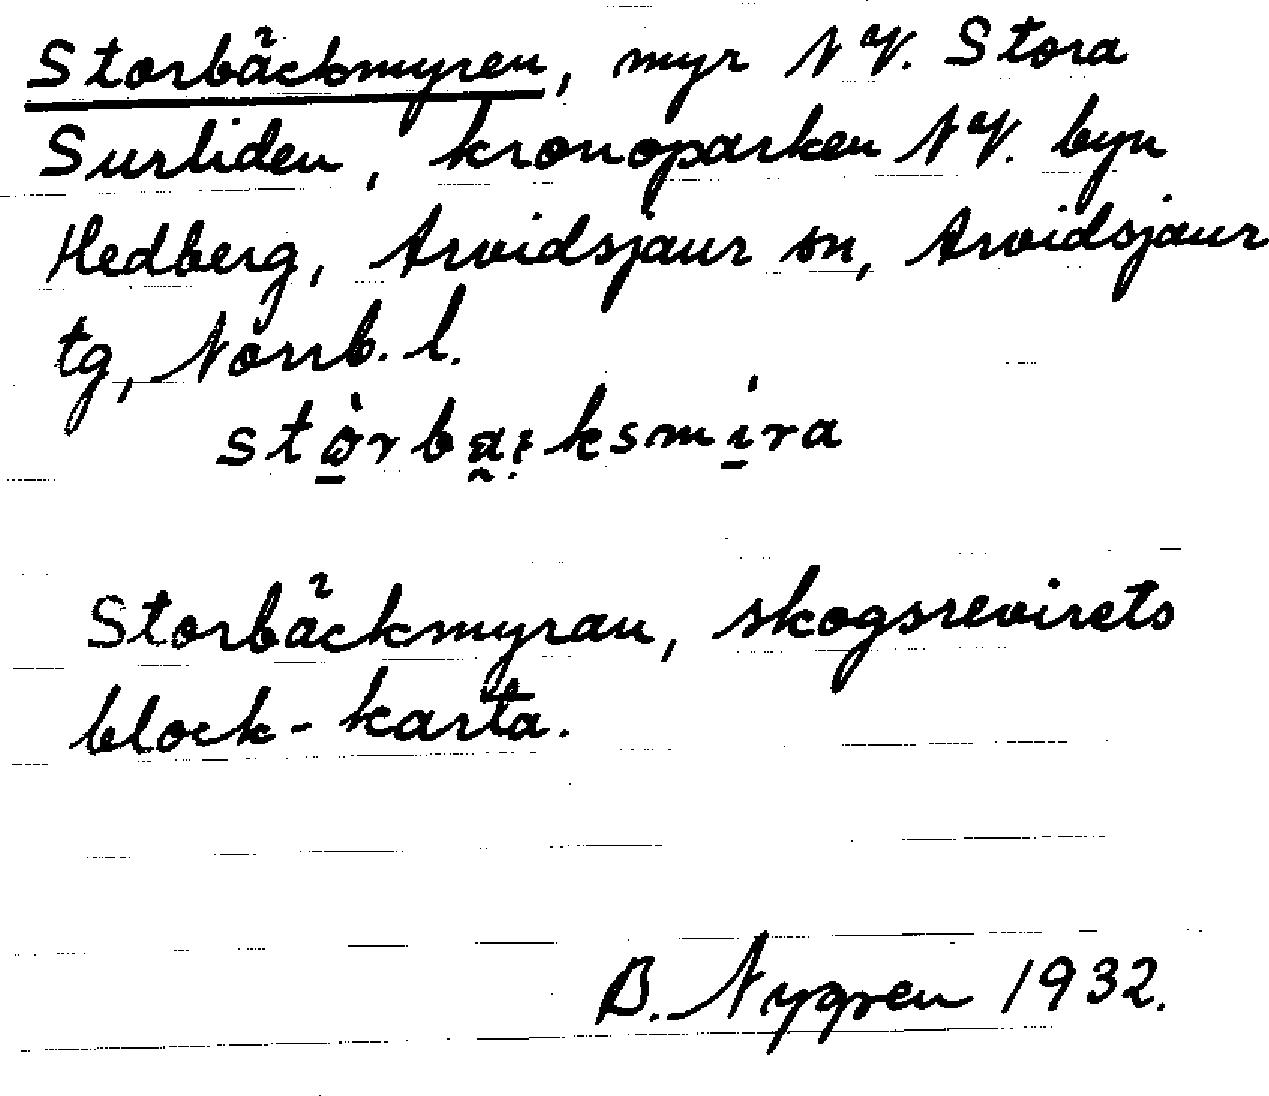 Storbäckmyren, myr NV. Stora
Surliden, kronoparken NV. byn
Hedberg, Arvidsjaur sn, Arvidsjaur
tg, Norrb. l.
Storbäckmyran, skogsrevirets
block-karta.
B. Nygren 1932.